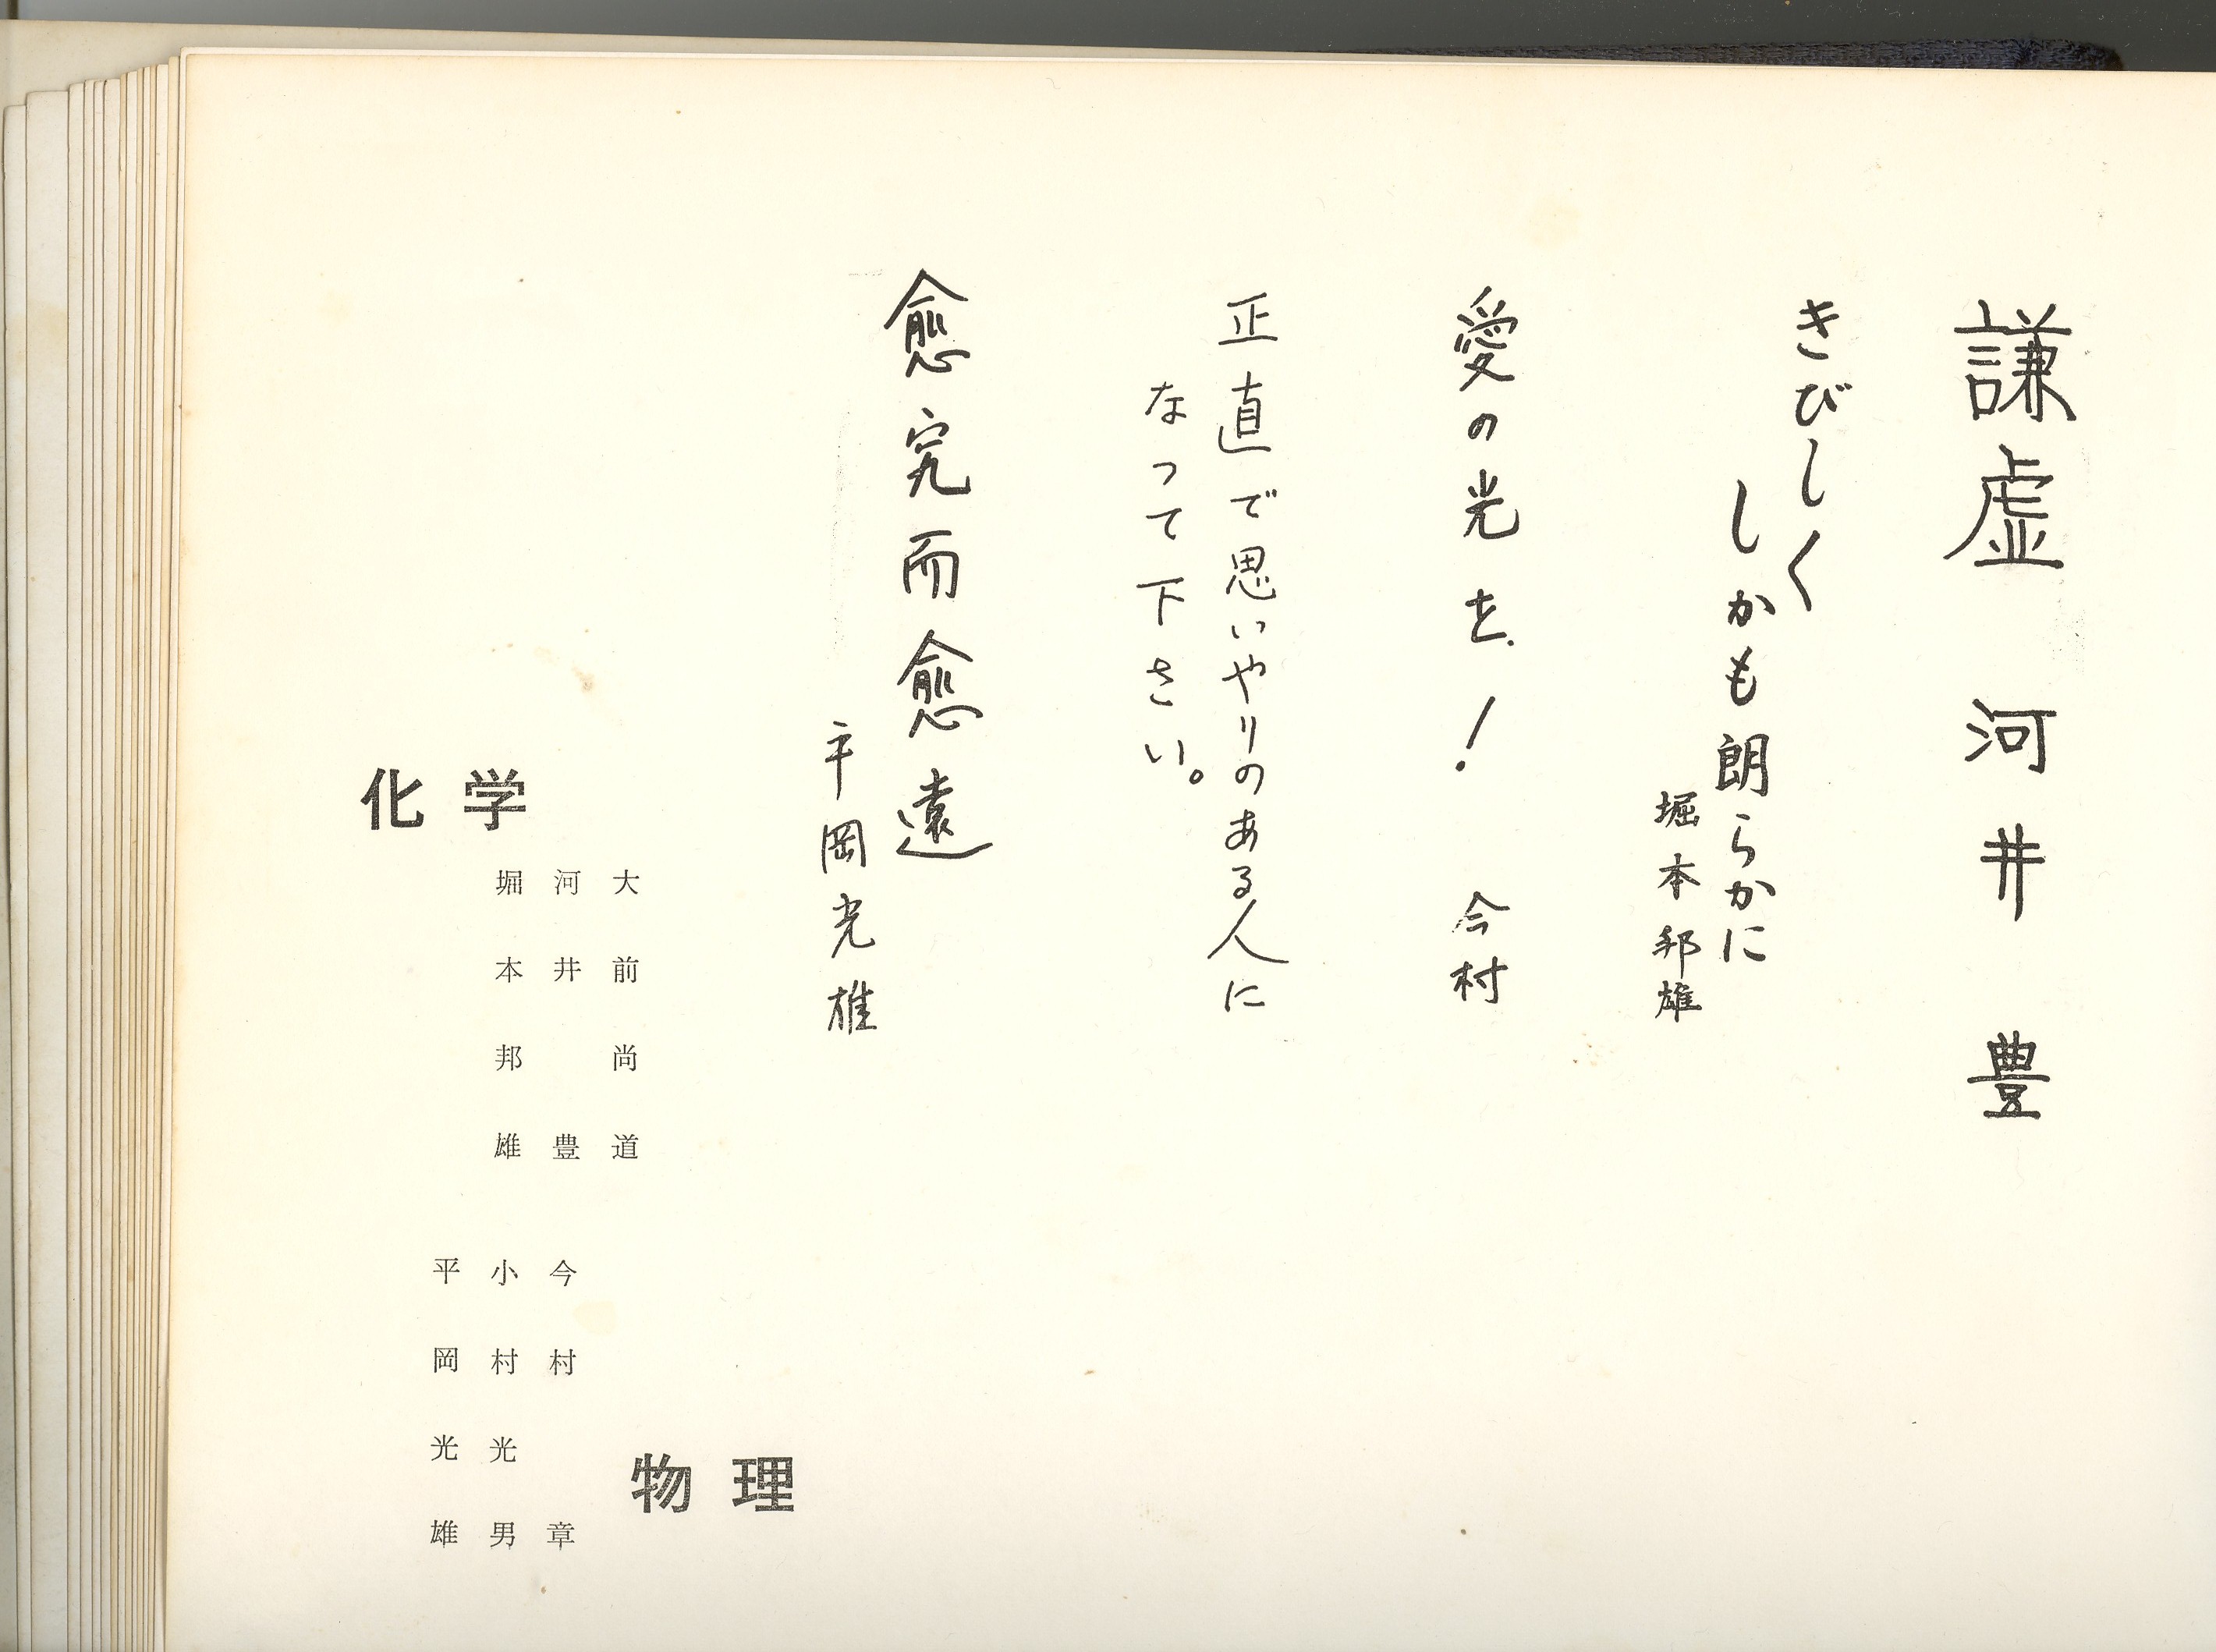 謙虚 河井 豊
きびしく
しかも朗らかに
堀本邦雄
愛の光を! 今村
正直で思いやりのある人に
なって下さい。
愈究而愈遠
平岡光雄
化学
大前尚道
河井 豊
堀本邦雄
物理
今村 章
小村光男
平岡光雄